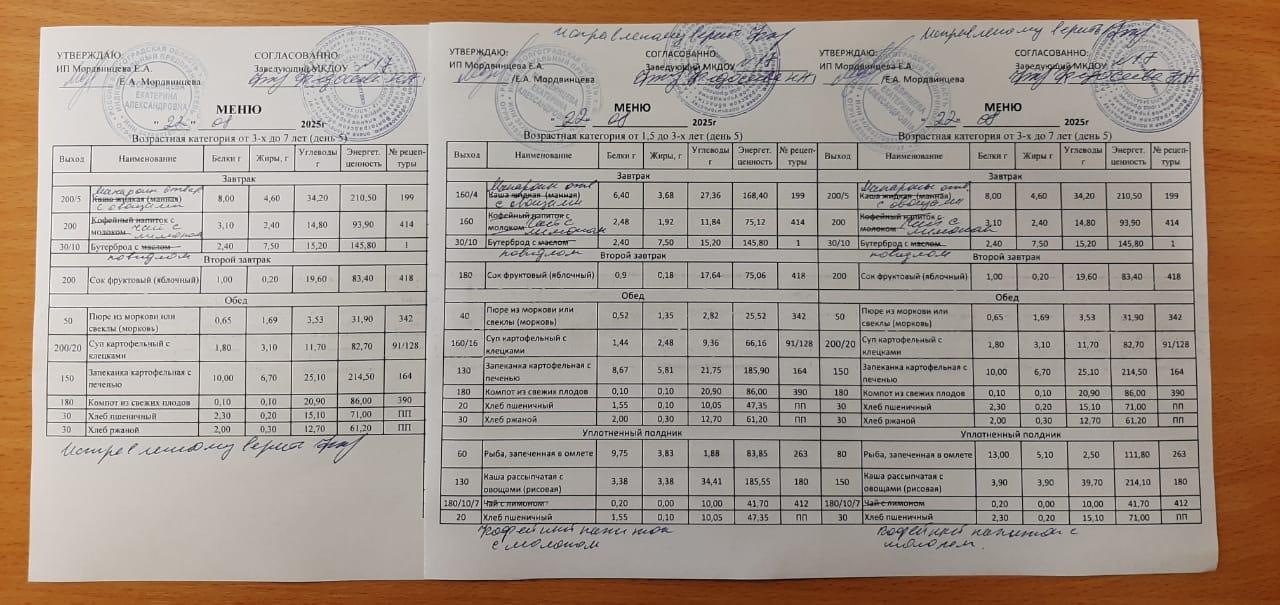 УТВЕРЖДАЮ:
ИП Мордвинцева Е.А.
/Е.А. Мордвинцева
СОГЛАСОВАННО:
Заведующий МКДОУ №17
МЕНЮ
"22" 08 2025г
Возрастная категория от 3-х до 7 лет (день 5)
Выход Наименование Белки г Жиры, г Углеводы г Энергет. ценность № рецеп-туры
Завтрак
Макароны отвар
200/5 Каша жидкая (манная) 8,00 4,60 34,20 210,50 199
с овощами
200 Кофейный напиток с молоком 3,10 2,40 14,80 93,90 414
чай с лимоном
30/10 Бутерброд с маслом 2,40 7,50 15,20 145,80 1
повидлом
Второй завтрак
200 Сок фруктовый (яблочный) 1,00 0,20 19,60 83,40 418
Обед
50 Пюре из моркови или свеклы (морковь) 0,65 1,69 3,53 31,90 342
200/20 Суп картофельный с клецками 1,80 3,10 11,70 82,70 91/128
150 Запеканка картофельная с печенью 10,00 6,70 25,10 214,50 164
180 Компот из свежих плодов 0,10 0,10 20,90 86,00 390
30 Хлеб пшеничный 2,30 0,20 15,10 71,00 ПП
30 Хлеб ржаной 2,00 0,30 12,70 61,20 ПП
Исправленному верить
Исправленному верить
УТВЕРЖДАЮ:
ИП Мордвинцева Е.А.
/Е.А. Мордвинцева
СОГЛАСОВАННО:
Заведующий МКДОУ №17
МЕНЮ
"22" 08 2025г
Возрастная категория от 1,5 до 3-х лет (день 5)
Выход Наименование Белки г Жиры, г Углеводы г Энергет. ценность № рецеп-туры
Завтрак
Макароны отв
160/4 Каша жидкая (манная) 6,40 3,68 27,36 168,40 199
с овощами
160 Кофейный напиток с молоком 2,48 1,92 11,84 75,12 414
чай с лимоном
30/10 Бутерброд с маслом 2,40 7,50 15,20 145,80 1
повидлом
Второй завтрак
180 Сок фруктовый (яблочный) 0,9 0,18 17,64 75,06 418
Обед
40 Пюре из моркови или свеклы (морковь) 0,52 1,35 2,82 25,52 342
160/16 Суп картофельный с клецками 1,44 2,48 9,36 66,16 91/128
130 Запеканка картофельная с печенью 8,67 5,81 21,75 185,90 164
180 Компот из свежих плодов 0,10 0,10 20,90 86,00 390
20 Хлеб пшеничный 1,55 0,10 10,05 47,35 ПП
30 Хлеб ржаной 2,00 0,30 12,70 61,20 ПП
Уплотненный полдник
60 Рыба, запеченная в омлете 9,75 3,83 1,88 83,85 263
130 Каша рассыпчатая с овощами (рисовая) 3,38 3,38 34,41 185,55 180
180/10/7 Чай с лимоном 0,20 0,00 10,00 41,70 412
20 Хлеб пшеничный 1,55 0,10 10,05 47,35 ПП
Кофейный напиток
с молоком
Исправленному верить
УТВЕРЖДАЮ:
ИП Мордвинцева Е.А.
/Е.А. Мордвинцева
СОГЛАСОВАННО:
Заведующий МКДОУ №17
МЕНЮ
"22" 08 2025г
Возрастная категория от 3-х до 7 лет (день 5)
Выход Наименование Белки г Жиры, г Углеводы г Энергет. ценность № рецеп-туры
Завтрак
Макароны отв.
200/5 Каша жидкая (манная) 8,00 4,60 34,20 210,50 199
с овощами
200 Кофейный напиток с молоком 3,10 2,40 14,80 93,90 414
чай с лимоном
30/10 Бутерброд с маслом 2,40 7,50 15,20 145,80 1
повидлом
Второй завтрак
200 Сок фруктовый (яблочный) 1,00 0,20 19,60 83,40 418
Обед
50 Пюре из моркови или свеклы (морковь) 0,65 1,69 3,53 31,90 342
200/20 Суп картофельный с клецками 1,80 3,10 11,70 82,70 91/128
150 Запеканка картофельная с печенью 10,00 6,70 25,10 214,50 164
180 Компот из свежих плодов 0,10 0,10 20,90 86,00 390
30 Хлеб пшеничный 2,30 0,20 15,10 71,00 ПП
30 Хлеб ржаной 2,00 0,30 12,70 61,20 ПП
Уплотненный полдник
80 Рыба, запеченная в омлете 13,00 5,10 2,50 111,80 263
150 Каша рассыпчатая с овощами (рисовая) 3,90 3,90 39,70 214,10 180
180/10/7 Чай с лимоном 0,20 0,00 10,00 41,70 412
30 Хлеб пшеничный 2,30 0,20 15,10 71,00 ПП
Кофейный напиток с
молоком.